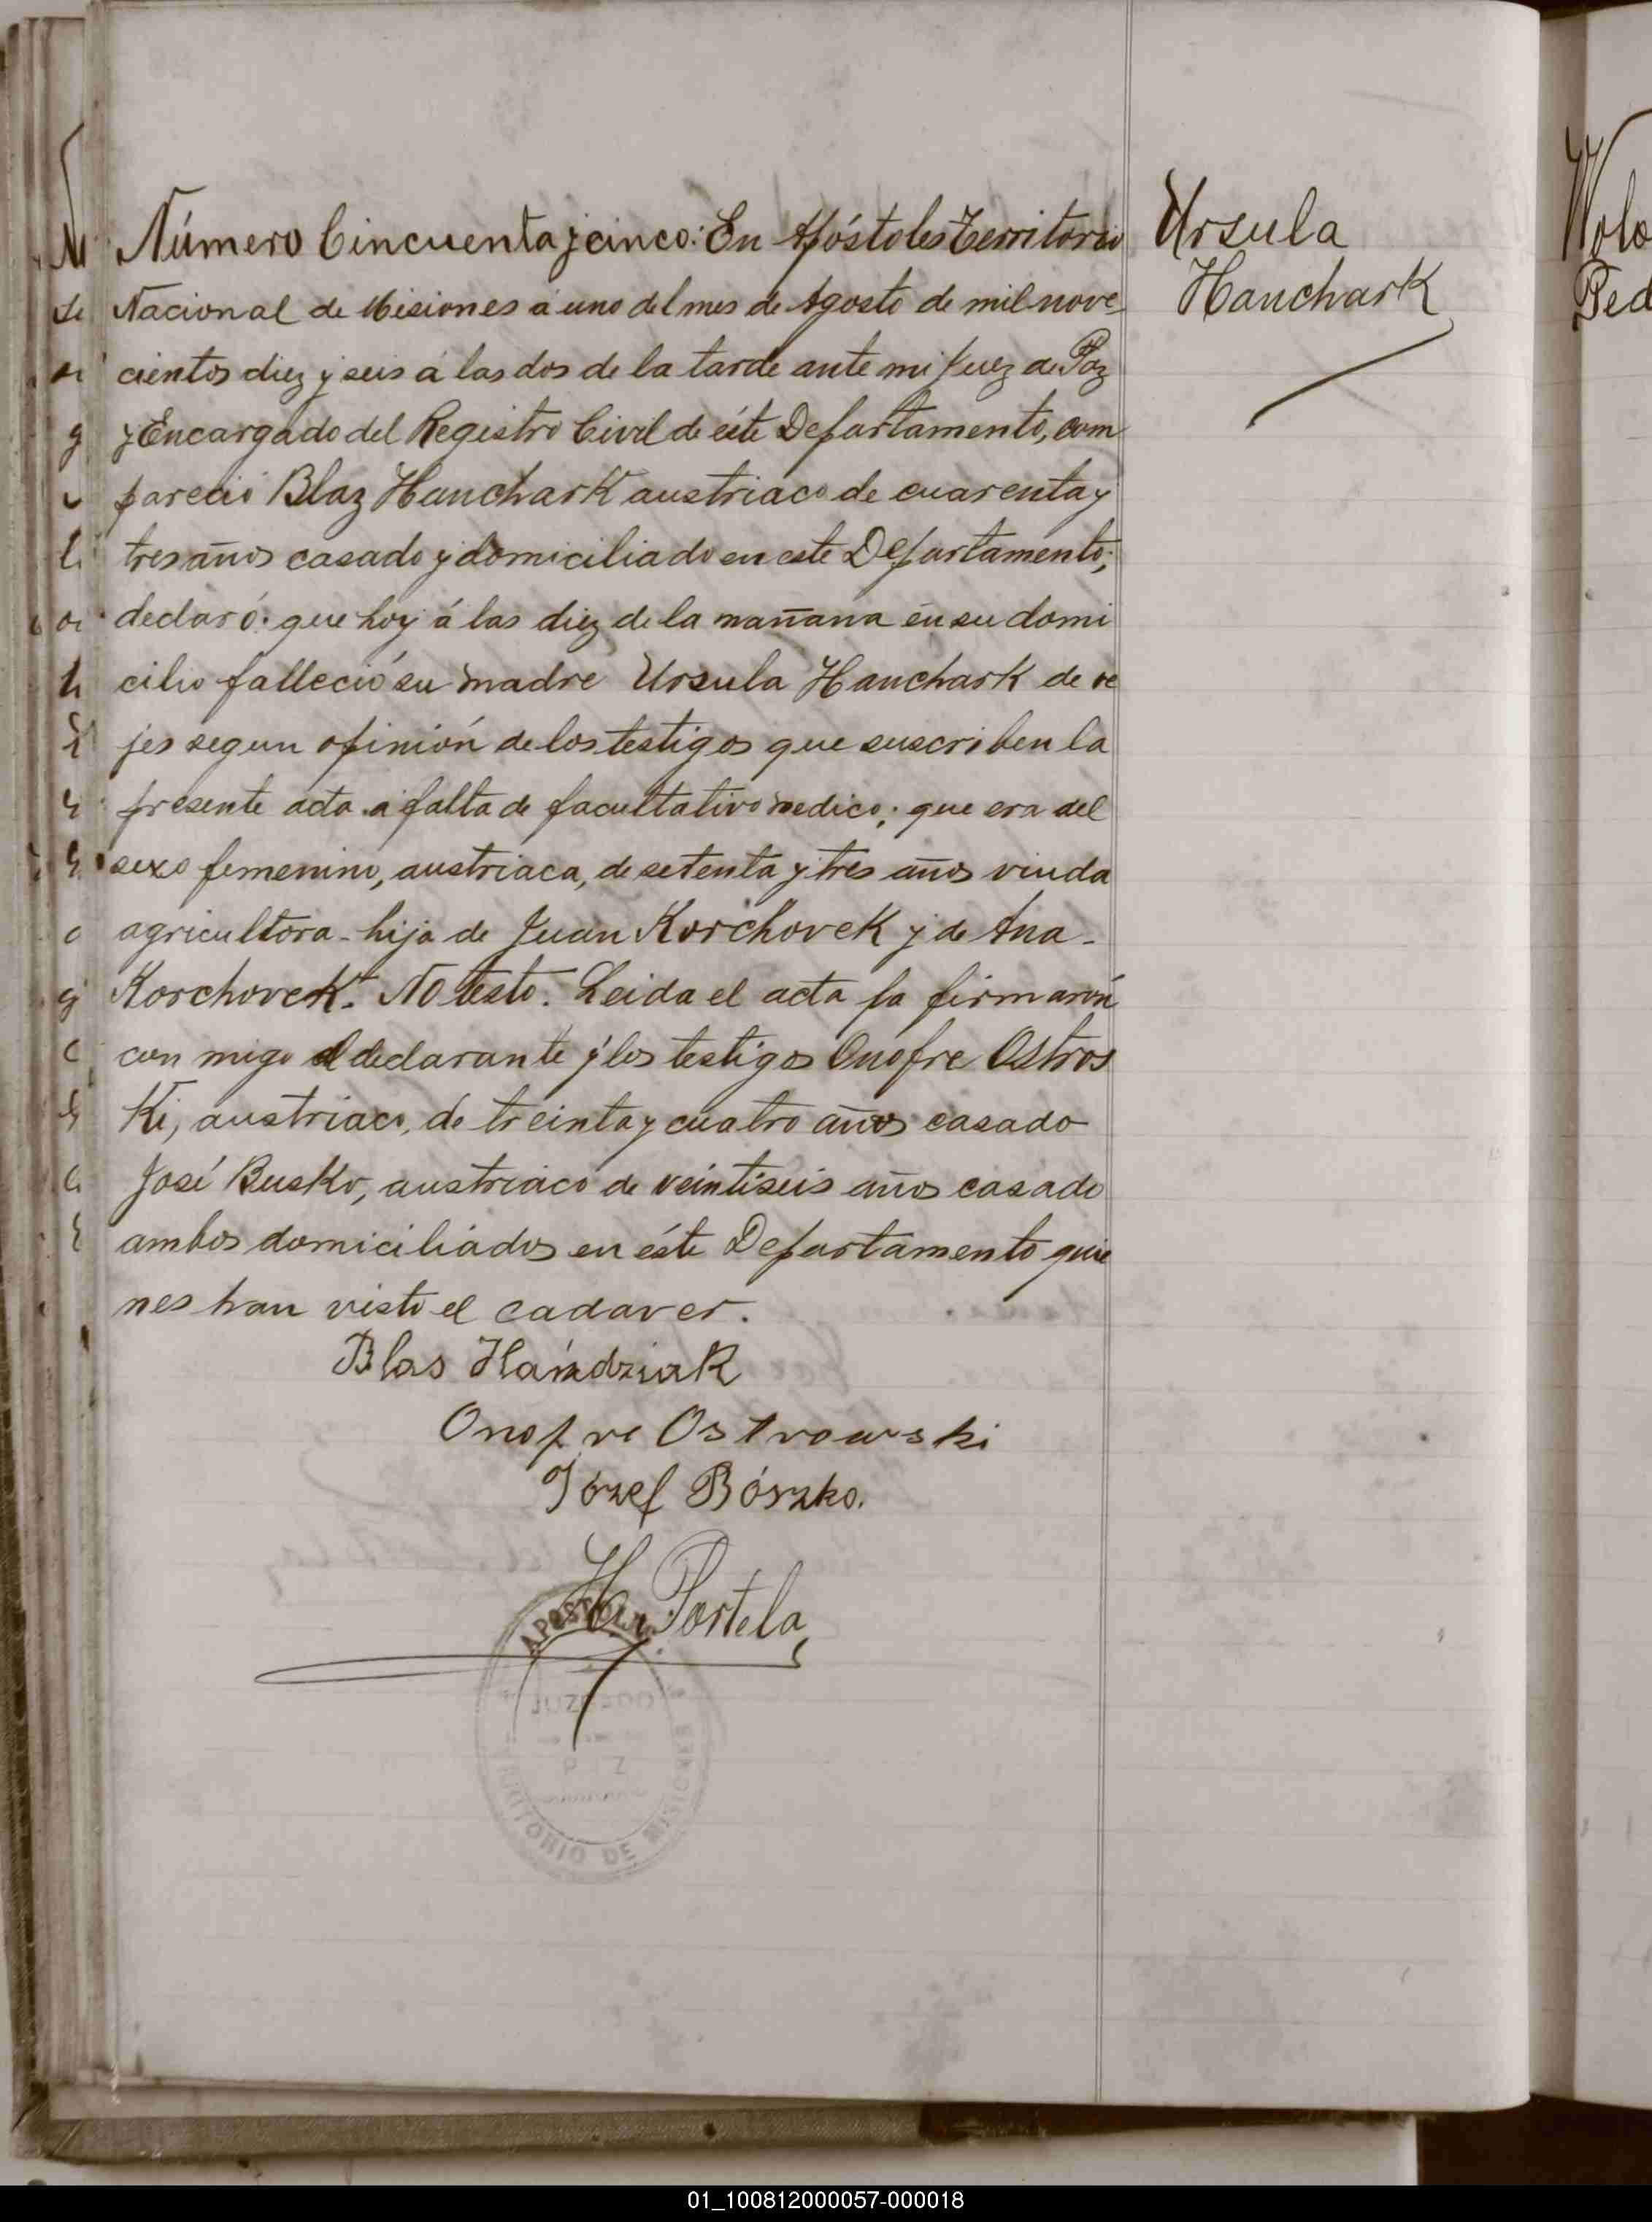 Número Cincuenta y cinco: En Apóstoles Territorio
Nacional de Misiones á uno del mes de Agosto de mil nove-
cientos diez y seis á las dos de la tarde ante mi Juez de Paz
y Encargado del Registro Civil de éste Departamento, com
pareció Blaz Hanchark austriaco de cuarenta y
tres años casado y domiciliado en este Departamento;
declaró: que hoy á las diez de la mañana en su domi
cilio falleció su madre Ursula Hanchark de ve
jes segun opinión de los testigos que suscriben la
presente acta á falta de facultativo medico; que era del
sexo femenino, austriaca, de setenta y tres años viuda
agricultora - hija de Juan Korchovek y de Ana -
Korchovek. No testó. Leida el acta la firmarón
con migo el declarante y los testigos Onofre Ostros
Ki, austriaco, de treinta y cuatro años casado
José Busko, austriaco de veintiseis años casado
ambos domiciliados en éste Departamento quie
nes han visto el cadaver.
Blas Hańdziak
Onofre Ostrowski
Józef Bószko.
H. Portela
APOSTOLES
JUZGADO
P Z
TERRITORIO DE MISIONES
Ursula
Hanchark
Wolo
Ped
01_100812000057-000018